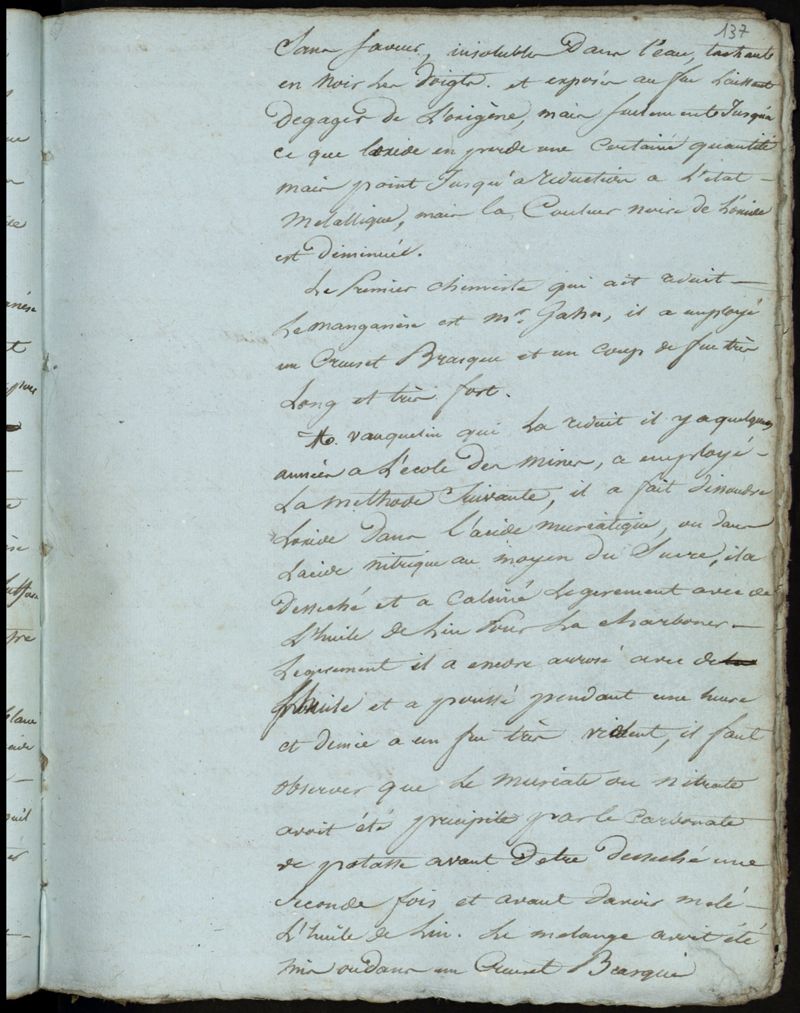 137
Sans saveur, insoluble Dans l'eau, tachant
en Noir les doigts. et exposé au feu Laissant
Degager de L'oxigène, mais seulement Jusqu'a
ce que loxide en perde une Certaine quantité
mais point Jusqu'a reduction a L'etat —
Metallique, mais la Couleur noire de l'oxide
est diminuée.
Le Premier chimiste qui ait reduit —
Le manganèse est mr. Gahn, il a employé
un Creuset Brasqué et un coup de feu très
Long et très fort.
M. vauquelin qui La reduit il y a quelques
années a L'école des mines, a employé —
La methode suivante, il a fait dissoudre
Loxide Dans l'acide muriatique, ou dans
Lacide nitrique au moyen du Sucre, il a
Desseché et a calciné Legerement avec de
L'huile de Lin Pour La charboner —
Legerement il a encore arrosé avec de
l'huile et a poussé pendant une heure
et demie a un feu très violent, il faut
observer que Le muriate ou nitrate
avoit été precipité par le Carbonate
de potasse avant D'etre desseché une
Seconde fois et avant davoir melé —
L'huile de Lin. Le melange avoit été
mis dans un Creuset Brasqué